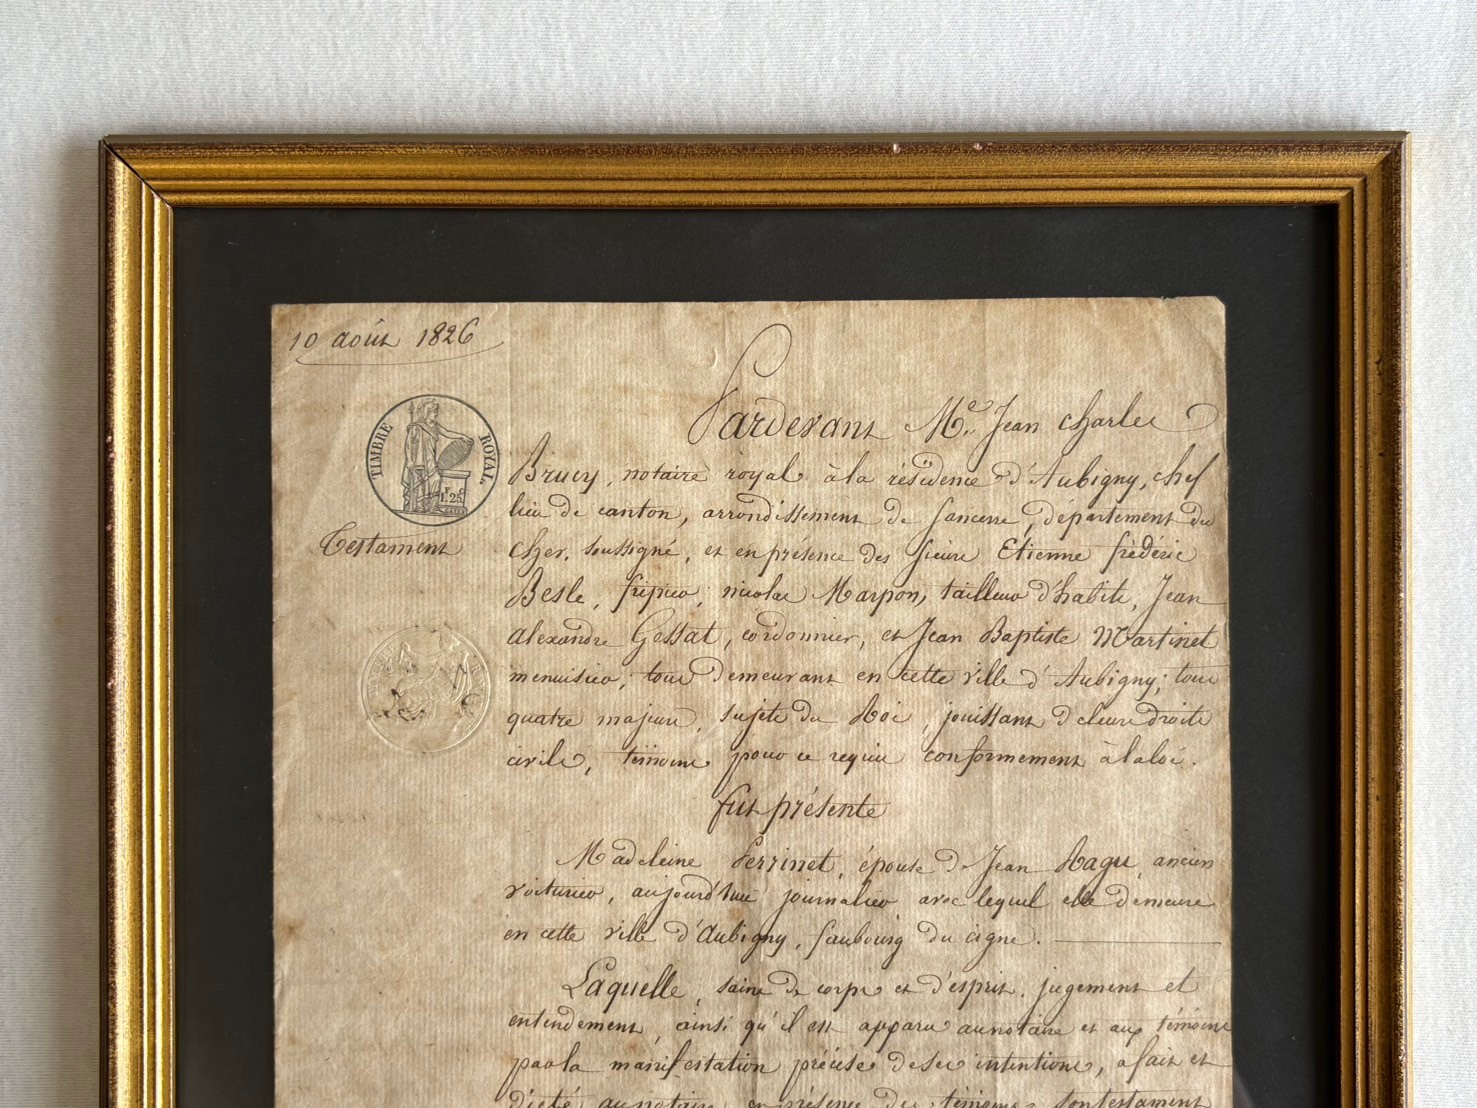 10 août 1826
TIMBRE ROYAL.
1 F. 25 c
Testament
Pardevant Me. Jean Charles
Brucy, notaire royal à la résidence d'Aubigny, chef
lieu de canton, arrondissement de Sancerre, département du
Cher, soussigné, et en présence des sieurs Etienne frédéric
Besle, fripier, nicolas Marpon, tailleur d'habits, Jean
alexandre Gessat, cordonnier, et Jean Baptiste Martinet
menuisier, tous demeurant en cette ville d'Aubigny; tous
quatre majeurs, sujets du Roi, jouissant de leurs droits
civils, témoins pour ce requis conformement à la loi.
fut présente
Madeleine Perrinet, épouse de Jean Ragu, ancien
voiturier, aujourd'hui journalier avec lequel elle demeure
en cette ville d'Aubigny, faubourg du cigne.
Laquelle, saine de corps et d'esprit, jugement et
entendement, ainsi qu'il est apparu au notaire et aux témoins
par la manifestation précise de ses intentions, a fait et
dicté au notaire en présence des témoins, son testament